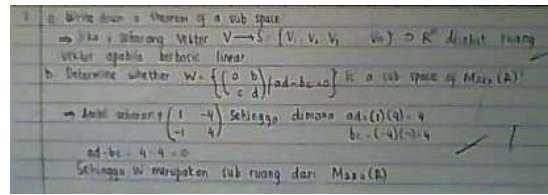 1 a. Write down a theorem of a sub space
⇒ Jika, sebarang vektor V → S = {V₁, V₂, V₃ Vn} ⊃ Rⁿ disebut ruang
vektor apabila berbasis linear
b. Determine whether W = {(a b c d) | ad - bc = 0} is a sub space of M₂ₓ₂(R)!
⇒ Ambil sebarang (1 -4 -1 4) Sehingga dimana ad = (1)(4) = 4
bc = (-4)(-1) = 4
ad - bc = 4 - 4 = 0
Sehingga W merupakan sub ruang dari M₂ₓ₂(R)